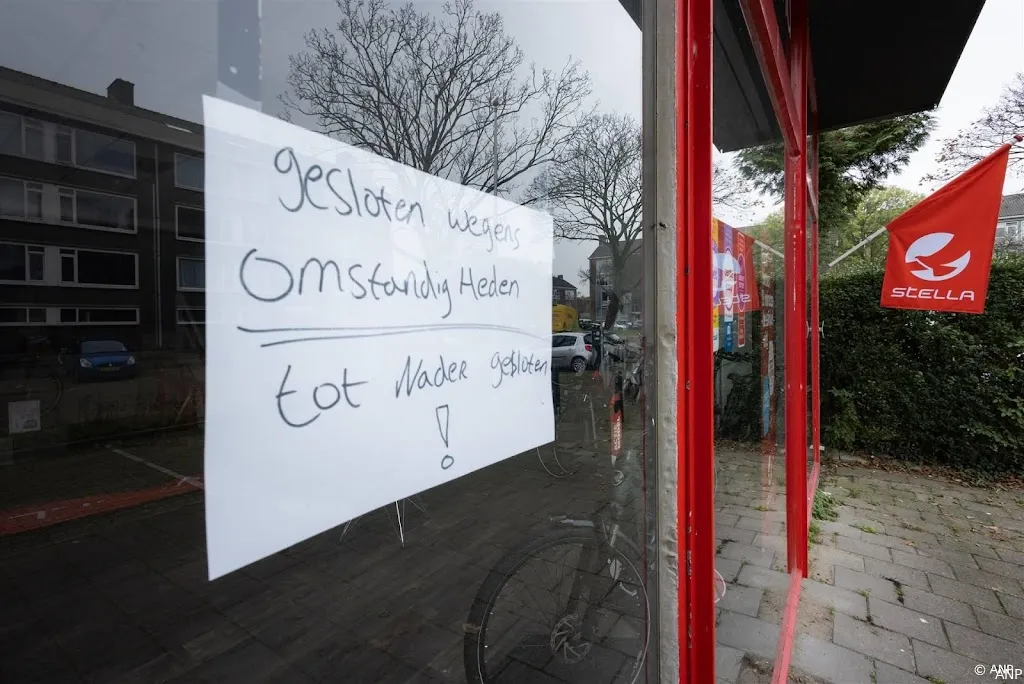 gesloten wegens
omstandig Heden
tot Nader gesloten
!
STELLA
© ANP
ANP